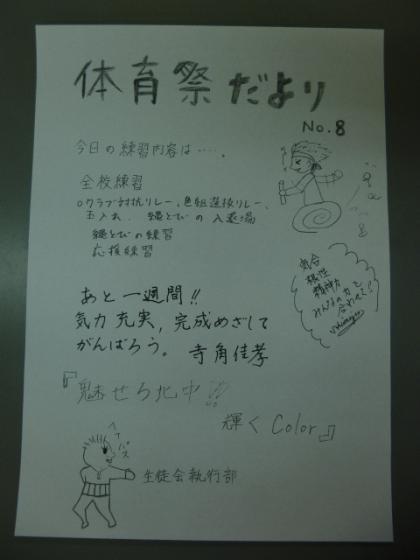 体育祭だより
No.8
今日の練習内容は‥‥。
全校練習
○クラブ対抗リレー、色組選抜リレー、
玉入れ、縄とびの入退場
縄とびの練習
応援練習
気合
根性
精神力
みんなの力を
合わせて!
あと一週間!!
気力充実,完成めざして
がんばろう。 寺角佳孝
『魅せろ北中!!
輝くColor』
生徒会執行部